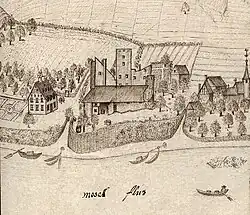 mosel flus